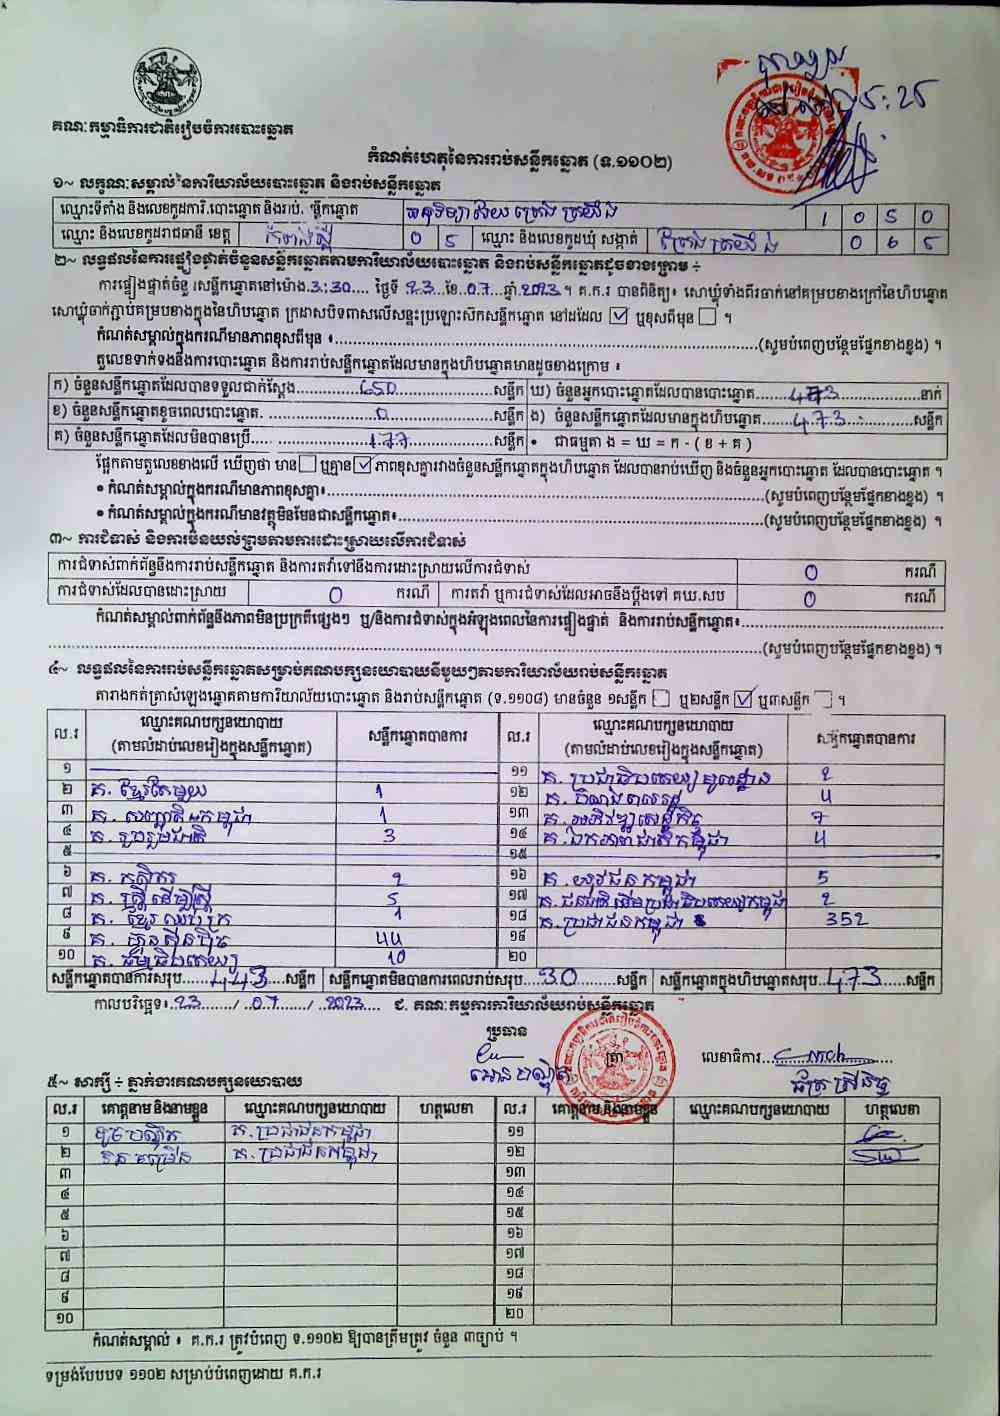 គណៈកម្មាធិការជាតិរៀបចំការបោះឆ្នោត
កំណត់ហេតុនៃការរាប់សន្លឹកឆ្នោត (ទ.១១០២)
១~ លក្ខណៈសម្គាល់នៃការិយាល័យបោះឆ្នោត និងរាប់សន្លឹកឆ្នោត
ឈ្មោះទីតាំង និងលេខកូដការិ.បោះឆ្នោត និងរាប់. ឆ្នោត 1 0 5 0
ឈ្មោះ និងលេខកូដរាជធានី ខេត្ត 0 5 ឈ្មោះ និងលេខកូដឃុំ សង្កាត់ 0 6 5
២~ លទ្ធផលនៃការផ្ទៀងផ្ទាត់ចំនួនសន្លឹកឆ្នោតតាមការិយាល័យបោះឆ្នោត និងរាប់សន្លឹកឆ្នោតដូចខាងក្រោម ÷
ការផ្ទៀងផ្ទាត់ចំនួនសន្លឹកឆ្នោតនៅម៉ោង 3:30 ថ្ងៃទី 23 ខែ 07 ឆ្នាំ 2023 ។ គ.ក.រ បានពិនិត្យ៖ សោឃ្លុំទាំងពីរចាក់នៅគម្របខាងក្រៅនៃហិបឆ្នោត
សោឃ្លុំចាក់ភ្ជាប់គម្របខាងក្នុងនៃហិបឆ្នោត ក្រដាសបិទពាសលើសន្ទះប្រឡោះសឹកសន្លឹកឆ្នោត នៅដដែល ☑ ឬខុសពីមុន ☐ ។
កំណត់សម្គាល់ក្នុងករណីមានភាពខុសពីមុន ៖ (សូមបំពេញបន្ថែមផ្នែកខាងខ្នង) ។
តួលេខទាក់ទងនឹងការបោះឆ្នោត និងការរាប់សន្លឹកឆ្នោតដែលមានក្នុងហិបឆ្នោតមានដូចខាងក្រោម ៖
ក) ចំនួនសន្លឹកឆ្នោតដែលបានទទួលជាក់ស្តែង 650 សន្លឹក ឃ) ចំនួនអ្នកបោះឆ្នោតដែលបានបោះឆ្នោត 473 នាក់
ខ) ចំនួនសន្លឹកឆ្នោតខូចពេលបោះឆ្នោត. 0 សន្លឹក ង) ចំនួនសន្លឹកឆ្នោតដែលមានក្នុងហិបឆ្នោត 473 សន្លឹក
គ) ចំនួនសន្លឹកឆ្នោតដែលមិនបានប្រើ 177 សន្លឹក • ជាធម្មតា ង = ឃ = ក - ( ខ + គ )
ផ្អែកតាមតួលេខខាងលើ ឃើញថា មាន ☐ ឬគ្មាន ☑ ភាពខុសគ្នារវាងចំនួនសន្លឹកឆ្នោតក្នុងហិបឆ្នោត ដែលបានរាប់ឃើញ និងចំនួនអ្នកបោះឆ្នោត ដែលបានបោះឆ្នោត ។
• កំណត់សម្គាល់ក្នុងករណីមានភាពខុសគ្នា៖ (សូមបំពេញបន្ថែមផ្នែកខាងខ្នង) ។
• កំណត់សម្គាល់ក្នុងករណីមានវត្ថុមិនមែនជាសន្លឹកឆ្នោត៖ (សូមបំពេញបន្ថែមផ្នែកខាងខ្នង) ។
៣~ ការជំទាស់ និងការមិនយល់ព្រមតាមការដោះស្រាយលើការជំទាស់
ការជំទាស់ពាក់ព័ន្ធនឹងការរាប់សន្លឹកឆ្នោត និងការតវ៉ាទៅនឹងការដោះស្រាយលើការជំទាស់ 0 ករណី
ការជំទាស់ដែលបានដោះស្រាយ 0 ករណី ការតវ៉ា ឬការជំទាស់ដែលអាចនឹងប្តឹងទៅ គឃ.សប 0 ករណី
កំណត់សម្គាល់ពាក់ព័ន្ធនឹងភាពមិនប្រក្រតីផ្សេងៗ ឬ/និងការជំទាស់ក្នុងអំឡុងពេលនៃការផ្ទៀងផ្ទាត់ និងការរាប់សន្លឹកឆ្នោត៖
(សូមបំពេញបន្ថែមផ្នែកខាងខ្នង) ។
៤~ លទ្ធផលនៃការរាប់សន្លឹកឆ្នោតសម្រាប់គណបក្សនយោបាយនីមួយៗតាមការិយាល័យរាប់សន្លឹកឆ្នោត
តារាងកត់ត្រាសំឡេងឆ្នោតតាមការិយាល័យបោះឆ្នោត និងរាប់សន្លឹកឆ្នោត (ទ.១១០៨) មានចំនួន ១សន្លឹក ☐ ឬ២សន្លឹក ☑ ឬ៣សន្លឹក ☐ ។
ល.រ ឈ្មោះគណបក្សនយោបាយ សន្លឹកឆ្នោតបានការ ល.រ ឈ្មោះគណបក្សនយោបាយ សន្លឹកឆ្នោតបានការ
(តាមលំដាប់លេខរៀងក្នុងសន្លឹកឆ្នោត) (តាមលំដាប់លេខរៀងក្នុងសន្លឹកឆ្នោត)
១ ១១ គ. ប្រជាធិបតេយ្យមូលដ្ឋាន 2
២ គ. ខ្មែរតែមួយ 1 ១២ 4
៣ គ. សញ្ជាតិកម្ពុជា 1 ១៣ គ. អភិវឌ្ឍសេដ្ឋកិច្ច 7
៤ គ. រួបរួមជាតិ 3 ១៤ គ. ឯកភាពជាតិកម្ពុជា 4
៥ ១៥
៦ គ. កសិករ 2 ១៦ គ. យុវជនកម្ពុជា 5
៧ គ. ស្ត្រីដើម្បីស្ត្រី 5 ១៧ គ. ជនជាតិដើមប្រជាធិបតេយ្យកម្ពុជា 2
៨ គ. ខ្មែរឈប់ក្រ 1 ១៨ គ. ប្រជាជនកម្ពុជា 352
៩ គ. ហ៊្វុនស៊ិនប៉ិច 44 ១៩
១០ គ. ធម្មាធិបតេយ្យ 10 ២០
សន្លឹកឆ្នោតបានការសរុប 443 សន្លឹក សន្លឹកឆ្នោតមិនបានការពេលរាប់សរុប 30 សន្លឹក សន្លឹកឆ្នោតក្នុងហិបឆ្នោតសរុប 473 សន្លឹក
កាលបរិច្ឆេទ៖ 23 / 07 / 2023 ជ. គណៈកម្មការការិយាល័យរាប់សន្លឹកឆ្នោត
ប្រធាន ត្រា លេខាធិការ
៥~ សាក្សី ÷ ភ្នាក់ងារគណបក្សនយោបាយ
ល.រ គោត្តនាម និងនាមខ្លួន ឈ្មោះគណបក្សនយោបាយ ហត្ថលេខា ល.រ គោត្តនាម និងនាមខ្លួន ឈ្មោះគណបក្សនយោបាយ ហត្ថលេខា
១ គ. ប្រជាជនកម្ពុជា ១១
២ គ. ប្រជាជនកម្ពុជា ១២
៣ ១៣
៤ ១៤
៥ ១៥
៦ ១៦
៧ ១៧
៨ ១៨
៩ ១៩
១០ ២០
កំណត់សម្គាល់ ៖ គ.ក.រ ត្រូវបំពេញ ទ.១១០២ ឱ្យបានត្រឹមត្រូវ ចំនួន ៣ច្បាប់ ។
ទម្រង់បែបបទ ១១០២ សម្រាប់បំពេញដោយ គ.ក.រ